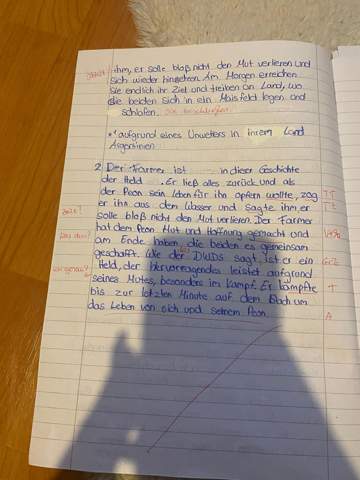 ihm, er solle bloß nicht den Mut verlieren und
sich wieder hinsetzen. Am Morgen erreichen
sie endlich ihr Ziel und treiben an Land, wo
die beiden sich in ein Maisfeld legen und
schlafen.
*¹ aufgrund eines Unwetters in ihrem Land
Argentinien
2. Der Farmer ist in dieser Geschichte
der Held. Er ließ alles zurück und als
der Peon sein Leben für ihn opfern wollte, zog
er ihn aus dem Wasser und sagte ihm, er
solle bloß nicht den Mut verlieren. Der Farmer
hat dem Peon Mut und Hoffnung gemacht und
am Ende haben die beiden es gemeinsam
geschafft. Wie der DWDS sagt, ist er ein
Held, der hervorragendes leistet aufgrund
seines Mutes, besonders im Kampf. Er kämpfte
bis zur letzten Minute auf dem Dach um
das Leben von sich und seinem Peon.
T
A